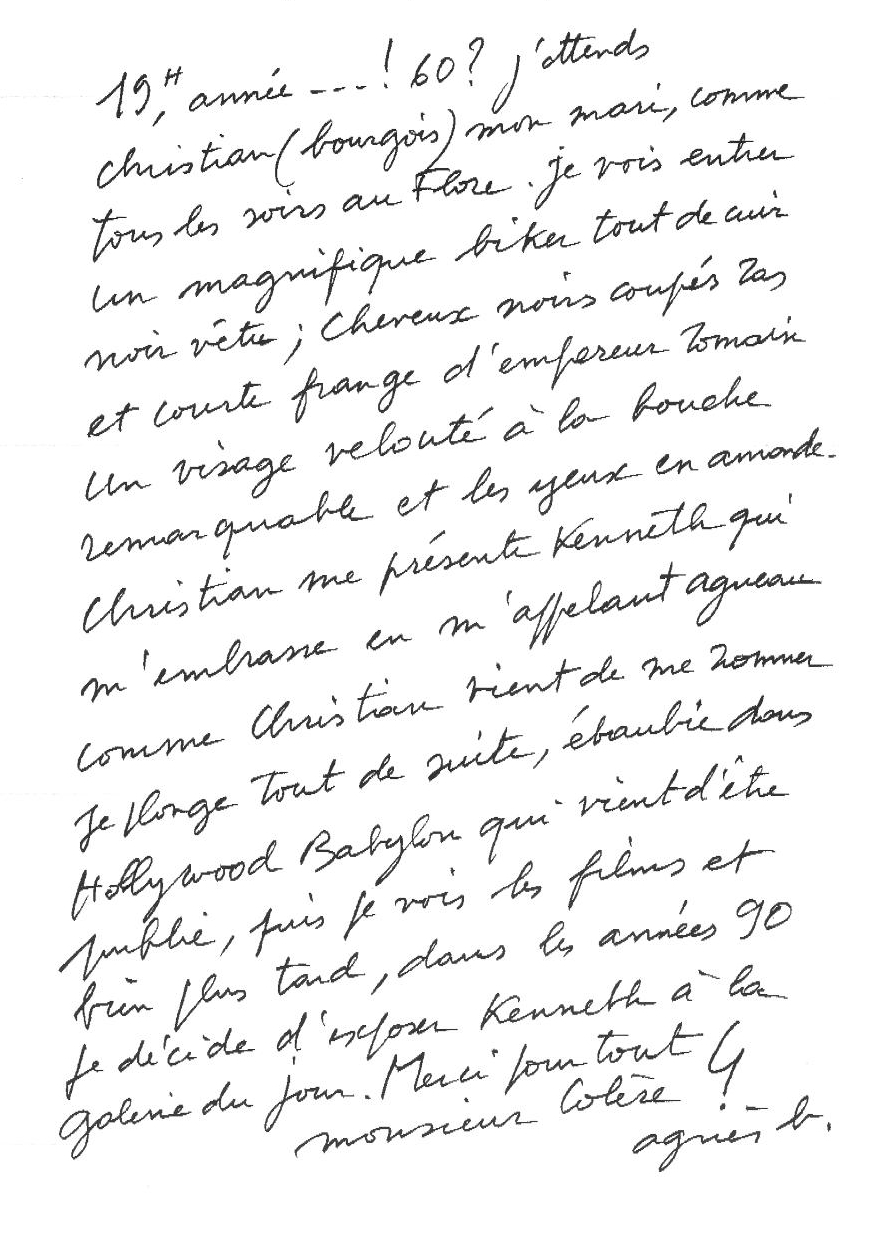 19H, année ---! 60? j'attends
Christian (bourgois) mon mari, comme
tous les soirs au Flore. je vois entrer
un magnifique biker tout de cuir
noir vêtu ; Cheveux noirs coupés ras
et courte frange d'empereur romain
un visage velouté à la bouche
remarquable et les yeux en amande.
Christian me présente Kenneth qui
m'embrasse en m'appelant agneau
comme Christian vient de me nommer
Je plonge tout de suite, ébaubie dans
Hollywood Babylon qui vient d'être
publié, puis je vois les films et
bien plus tard, dans les années 90
je décide d'exposer Kenneth à la
galerie du jour. Merci pour tout
monsieur Colère !
agnès b.